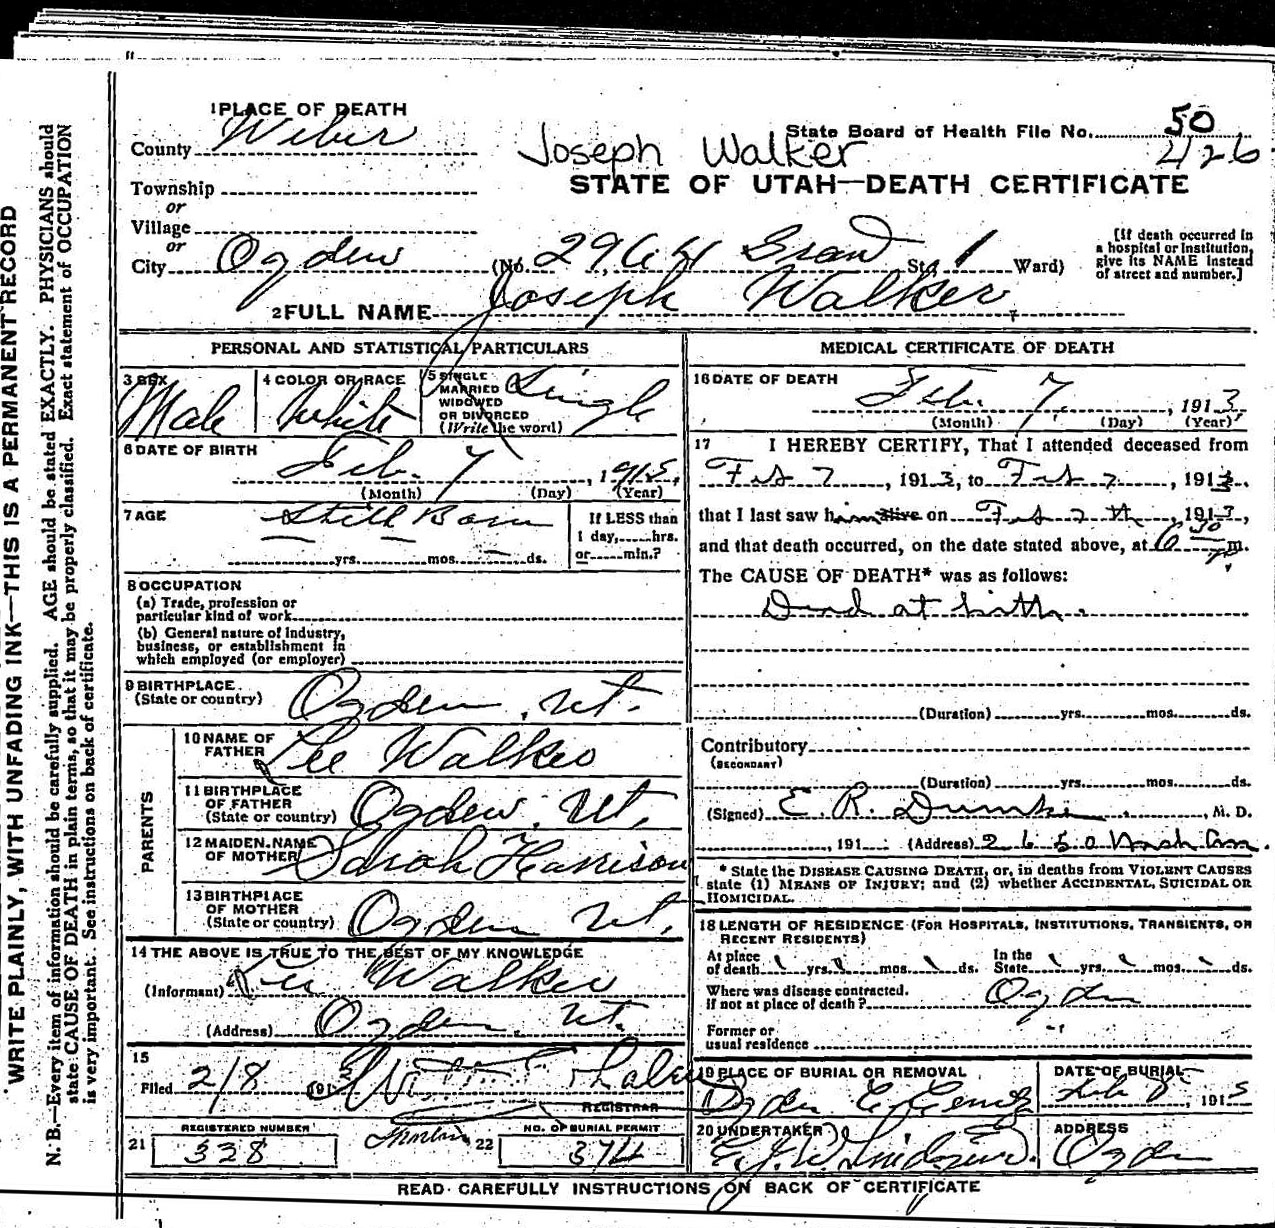 1 PLACE OF DEATH
County Weber
State Board of Health File No. 50
426
Joseph Walker
STATE OF UTAH—DEATH CERTIFICATE
Township
or
Village
or
City Ogden (No. 2964 Grant St. 1 Ward)
[If death occurred in a hospital or institution, give its NAME instead of street and number.]
2 FULL NAME Joseph Walker
PERSONAL AND STATISTICAL PARTICULARS
3 SEX Male
4 COLOR OR RACE White
5 SINGLE MARRIED WIDOWED OR DIVORCED (Write the word) Single
6 DATE OF BIRTH Feb. 7, 1913,
(Month) (Day) (Year)
7 AGE Still Born
yrs. mos. ds.
If LESS than 1 day, hrs. or min.?
8 OCCUPATION
(a) Trade, profession or particular kind of work
(b) General nature of Industry, business, or establishment in which employed (or employer)
9 BIRTHPLACE (State or country) Ogden, Ut.
PARENTS
10 NAME OF FATHER Lee Walker
11 BIRTHPLACE OF FATHER (State or country) Ogden, Ut.
12 MAIDEN NAME OF MOTHER Sarah Harrison
13 BIRTHPLACE OF MOTHER (State or country) Ogden Ut.
14 THE ABOVE IS TRUE TO THE BEST OF MY KNOWLEDGE
(Informant) Lee Walker
(Address) Ogden, Ut.
15
Filed 2/8 191
REGISTRAR
21 REGISTERED NUMBER 328
22 NO. OF BURIAL PERMIT 374
MEDICAL CERTIFICATE OF DEATH
16 DATE OF DEATH
Feb. 7, 1913
(Month) (Day) (Year)
17 I HEREBY CERTIFY, That I attended deceased from
Feb 7, 1913, to Feb 7, 1913.
that I last saw him alive on Feb 7th, 1913,
and that death occurred, on the date stated above, at 6 30 P. m.
The CAUSE OF DEATH* was as follows:
Dead at birth.
(Duration) yrs. mos. ds.
Contributory
(SECONDARY)
(Duration) yrs. mos. ds.
(Signed) E. R. Dumke, M. D.
, 191 (Address) 2650 Wash Ave.
* State the DISEASE CAUSING DEATH, or, in deaths from VIOLENT CAUSES state (1) MEANS OF INJURY; and (2) whether ACCIDENTAL, SUICIDAL OR HOMICIDAL.
18 LENGTH OF RESIDENCE (FOR HOSPITALS, INSTITUTIONS, TRANSIENTS, OR RECENT RESIDENTS)
At place of death yrs. mos. ds. In the State yrs. mos. ds.
Where was disease contracted, if not at place of death? Ogden
Former or usual residence
19 PLACE OF BURIAL OR REMOVAL Ogden C. Cemty
DATE OF BURIAL Feb 8, 1913
20 UNDERTAKER
ADDRESS Ogden
READ CAREFULLY INSTRUCTIONS ON BACK OF CERTIFICATE
WRITE PLAINLY, WITH UNFADING INK—THIS IS A PERMANENT RECORD
N. B.—Every item of information should be carefully supplied. AGE should be stated EXACTLY. PHYSICIANS should
state CAUSE OF DEATH in plain terms, so that it may be properly classified. Exact statement of OCCUPATION
is very important. See instructions on back of certificate.